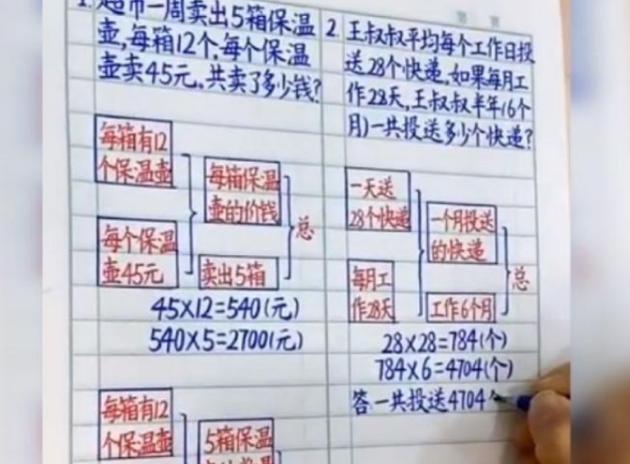 1. 超市一周卖出5箱保温
壶,每箱12个,每个保温
壶卖45元,共卖了多少钱?
每箱有12
个保温壶
每箱保温
壶的价钱
总
每个保温
壶45元
卖出5箱
45×12=540(元)
540×5=2700(元)
每箱有12
个保温壶
5箱保温
2. 王叔叔平均每个工作日投
送28个快递,如果每月工
作28天,王叔叔半年(6个
月)一共投送多少个快递?
一天送
28个快递
一个月投送
的快递
总
每月工
作28天
工作6个月
28×28=784(个)
784×6=4704(个)
答 一共投送4704